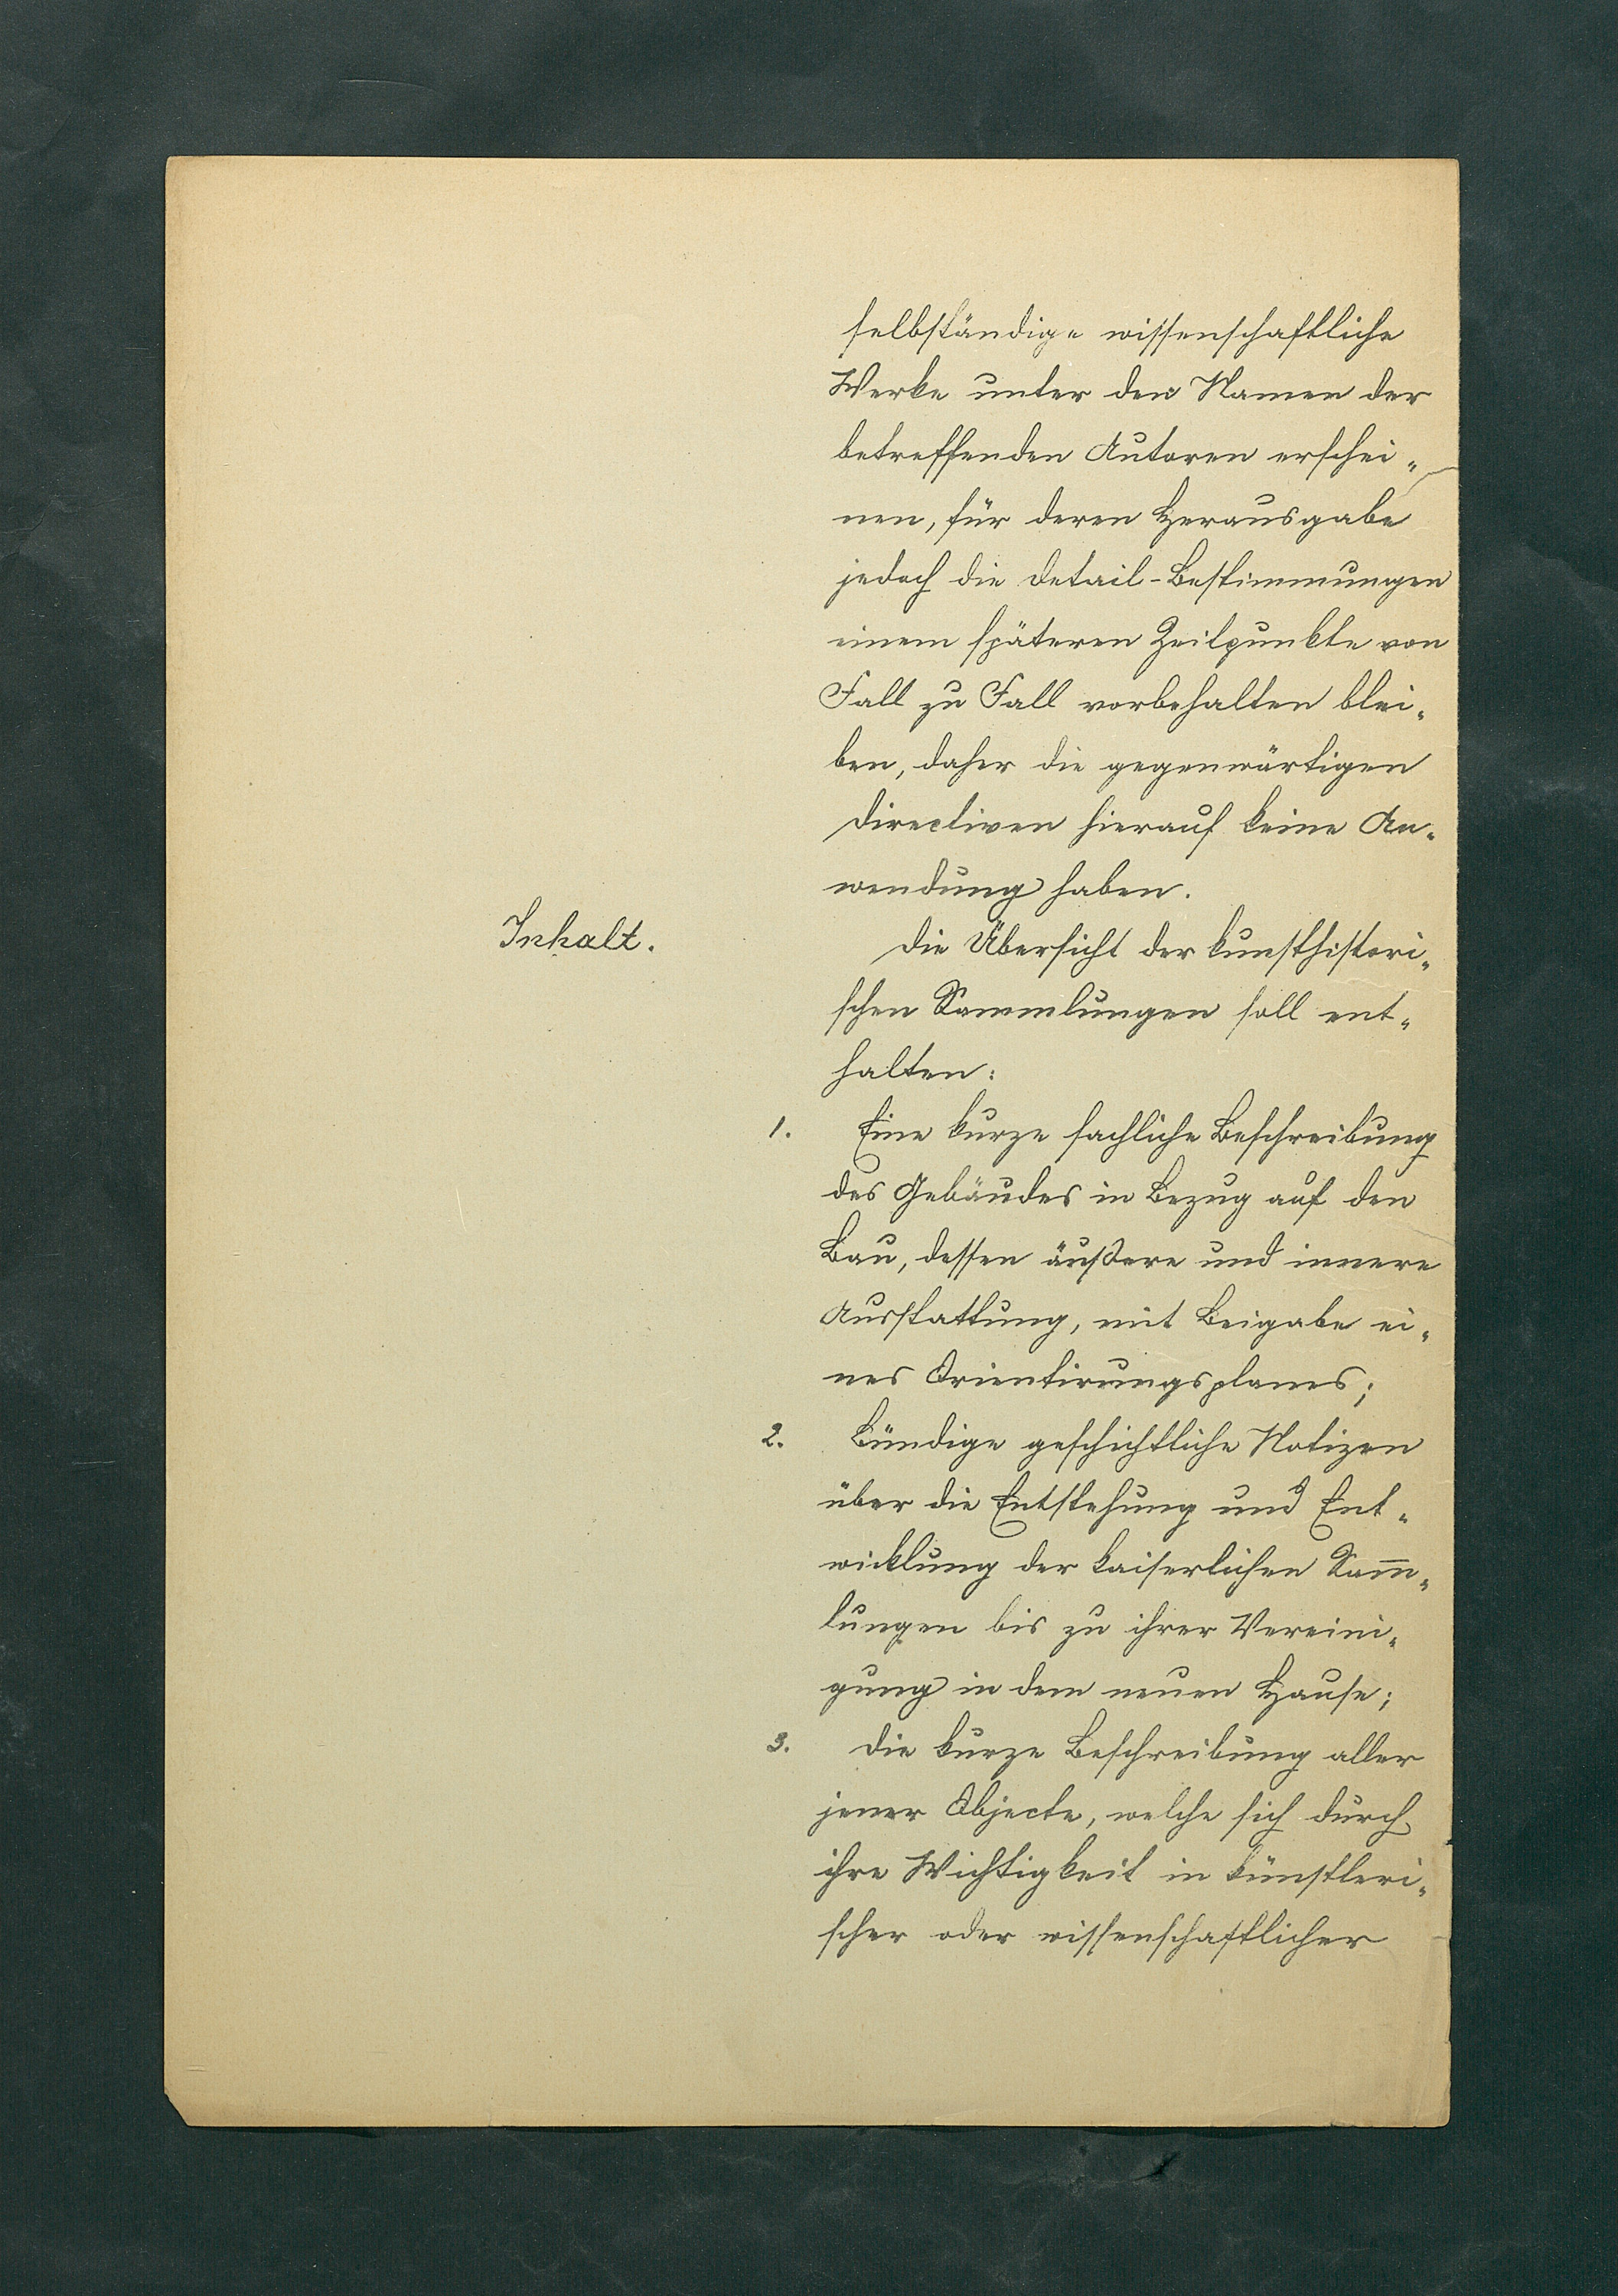 selbständige wissenschaftliche
Werke unter den Namen der
betreffenden Autoren erschei„
nen, für deren Herausgabe
jedoch die Detail-Bestimmungen
einem späteren Zeitpunkte von
Fall zu Fall vorbehalten blei„
ben, daher die gegenwärtigen
Directiven hierauf keine An„
wendung haben.
Inhalt.
Die Übersicht der kunsthistori„
schen Sammlungen soll ent„
halten:
1. Eine kurze sachliche Beschreibung
des Gebäudes in Bezug auf den
Bau, dessen äußere und innere
Ausstattung, mit Beigabe ei„
nes Orientirungsplanes;
2. Bündige geschichtliche Notizen
über die Entstehung und Ent„
wicklung der kaiserlichen Sam̅„
lungen bis zu ihrer Vereini„
gung in dem neuen Hause;
3. Die kurze Beschreibung aller
jener Objecte, welche sich durch
ihre Wichtigkeit in künstleri„
scher oder wissenschaftlicher